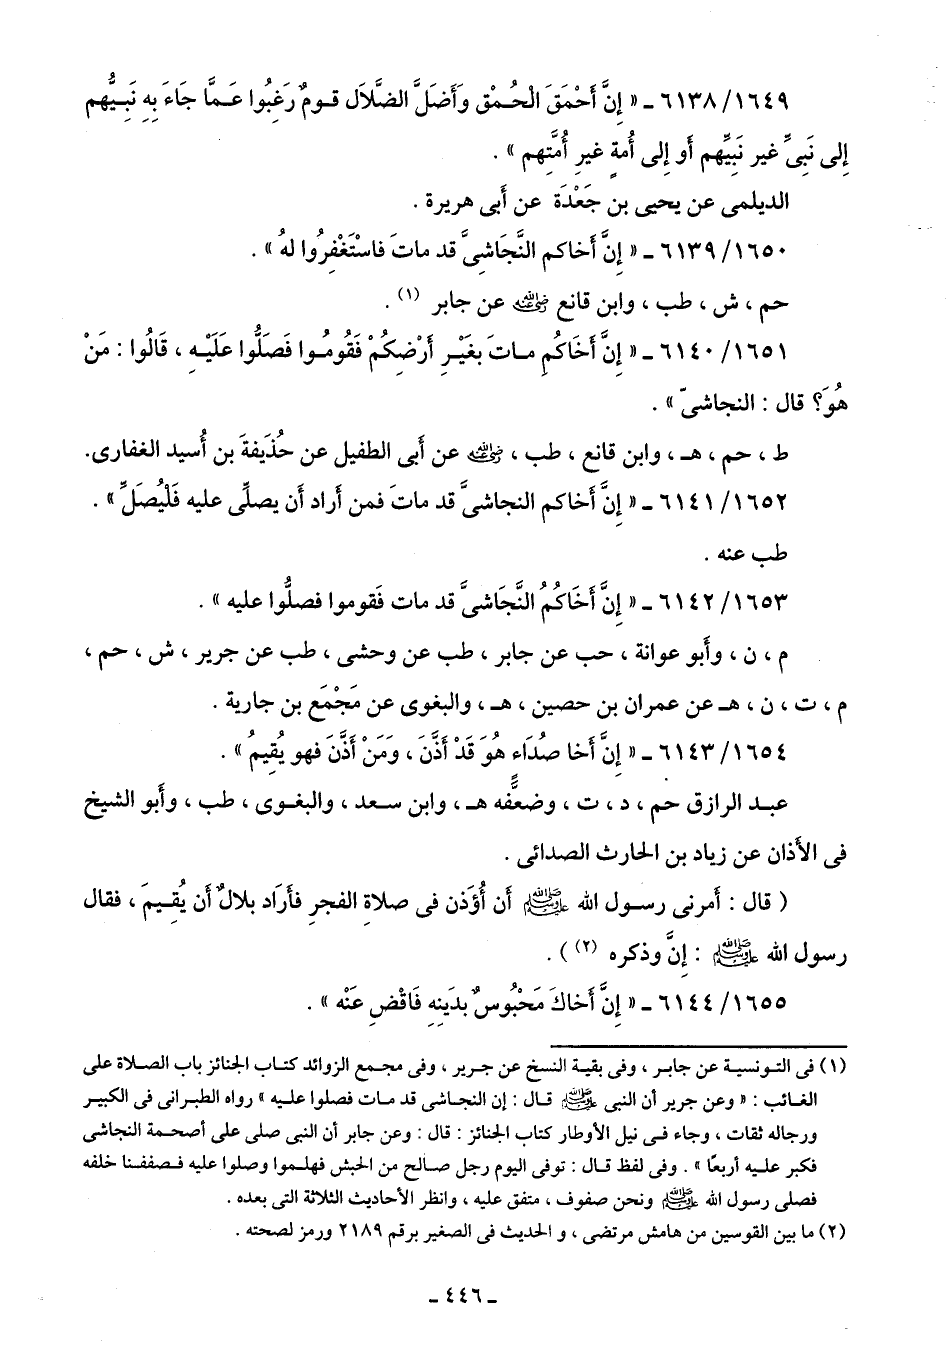 ٦١٣٨/١٦٤٩ ـ « إِنَّ أَحْمَقَ الْحُمْقِ وَأَضَلَّ الضَّلَالِ قومٌ رَغِبُوا عَمَّا جَاءَ بِهِ نَبِيُّهم
إِلى نَبىٍّ غيرِ نَبِيِّهم أَو إِلى أُمةٍ غيرِ أُمَّتِهِم » .
الديلمى عن يحيى بن جَعْدَةَ عن أَبى هريرة .
٦١٣٩/١٦٥٠ ـ « إِنَّ أَخاكم النَّجَاشِىَّ قد ماتَ فَاسْتَغْفِرُوا لهُ » .
حم ، ش ، طب ، وابن قانع رضي الله عنه عن جابر (١) .
٦١٤٠/١٦٥١ ـ « إِنَّ أَخَاكُم ماتَ بِغَيْرِ أَرْضِكُمْ فَقُومُوا فَصَلُّوا عَلَيْهِ ، قَالُوا : مَنْ
هُوَ؟ قال : النجاشىّ » .
ط ، حم ، هـ ، وابن قانع ، طب ، رضي الله عنه عن أَبى الطفيل عن حُذَيفةَ بن أُسيد الغفارى.
٦١٤١/١٦٥٢ ـ « إِنَّ أَخاكم النجاشىَّ قد ماتَ فمن أَراد أَن يصلِّى عليه فَلْيُصَلِّ » .
طب عنه .
٦١٤٢/١٦٥٣ ـ « إِنَّ أَخَاكُمُ النَّجَاشِىَّ قد مات فَقوموا فصلُّوا عليه » .
م ، ن ، وأَبو عوانة ، حب عن جابر ، طب عن وحشى ، طب عن جرير ، ش ، حم ،
م ، ت ، ن ، هـ عن عمران بن حصين ، هـ ، والبغوى عن مَجْمَع بن جارية .
٦١٤٣/١٦٥٤ ـ « إِنَّ أَخا صُدَاء هُوَ قَدْ أَذَّنَ ، وَمَنْ أَذَّنَ فهو يُقِيمُ » .
عبد الرازق حم ، د ، ت ، وضعَّفه هـ ، وابن سعد ، والبغوى ، طب ، وأَبو الشيخ
فى الأَذان عن زياد بن الحارث الصدائى .
( قال : أَمرنى رسول الله ﷺ أَن أُؤَذن فى صلاةِ الفجرِ فأَرَاد بلالٌ أَن يُقِيمَ ، فقال
رسول الله ﷺ : إِنَّ وذكره (٢) ) .
٦١٤٤/١٦٥٥ ـ « إِنَّ أَخاكَ مَحْبُوسٌ بِدَينِهِ فَاقْضِ عَنْه » .
(١) فى التونسية عن جابر ، وفى بقية النسخ عن جرير ، وفى مجمع الزوائد كتاب الجنائز باب الصلاة على
الغائب : « وعن جرير أن النبى ﷺ قال : إن النجاشى قد مات فصلوا عليه » رواه الطبرانى فى الكبير
ورجاله ثقات ، وجاء فى نيل الأوطار كتاب الجنائز : قال : وعن جابر أن النبى صلى على أصحمة النجاشى
فكبر عليه أربعًا » . وفى لفظ قال : توفى اليوم رجل صالح من الحبش فهلموا وصلوا عليه فصففنا خلفه
فصلى رسول الله ﷺ ونحن صفوف ، متفق عليه ، وانظر الأحاديث الثلاثة التى بعده .
(٢) ما بين القوسين من هامش مرتضى ، و الحديث فى الصغير برقم ٢١٨٩ ورمز لصحته .
ـ ٤٤٦ ـ